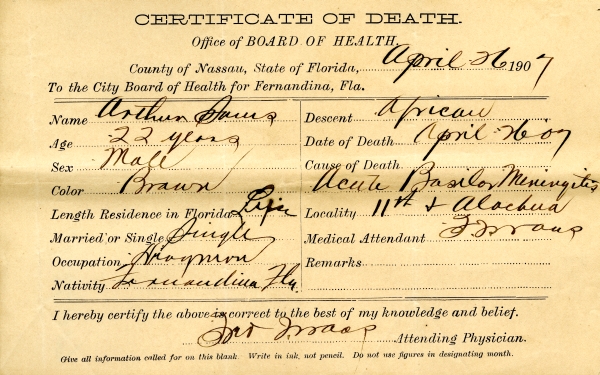 CERTIFICATE OF DEATH.
Office of BOARD OF HEALTH.
County of Nassau, State of Florida, April 26 1907
To the City Board of Health for Fernandina, Fla.
Name Arthur
Age 22 years
Sex Male
Color Brown
Length Residence in Florida Life
Married or Single Single
Occupation Drayman
Nativity Fernandina Fla.
Descent African
Date of Death April 26 07
Cause of Death
Acute Basilar Meningitis
Locality 11th & Alachua
Medical Attendant
Remarks
I hereby certify the above is correct to the best of my knowledge and belief.
Attending Physician.
Give all information called for on this blank. Write in ink, not pencil. Do not use figures in designating month.